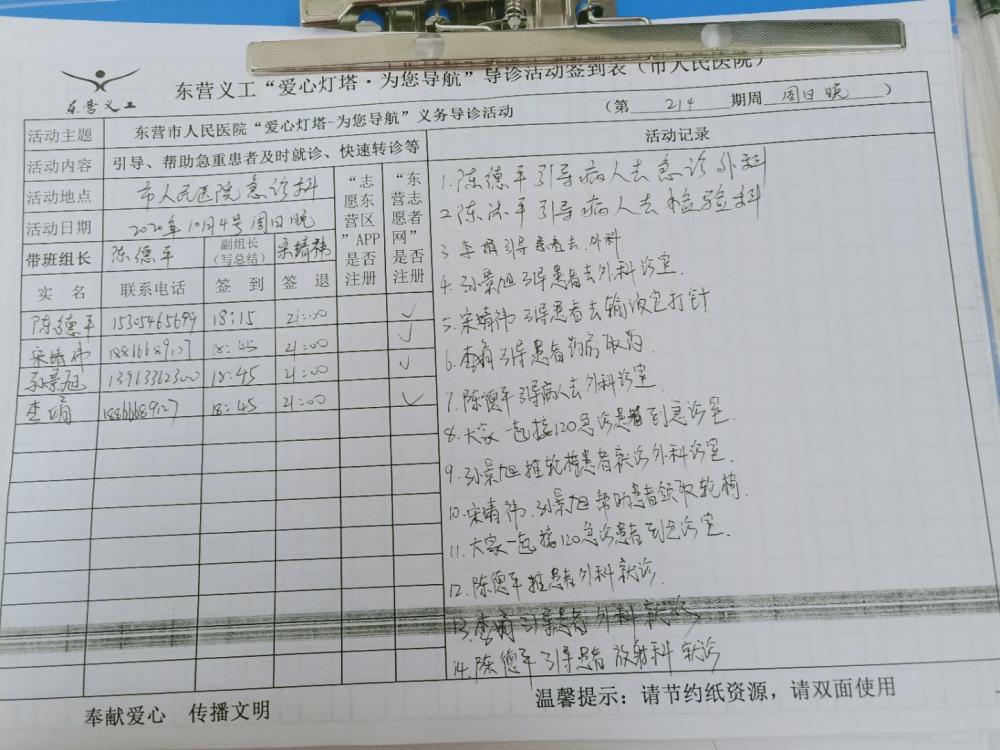 东营义工
东营义工“爱心灯塔·为您导航”导诊活动签到表（市人民医院）
（第 214 期周 周日晚 ）
活动主题 东营市人民医院“爱心灯塔-为您导航”义务导诊活动
活动内容 引导、帮助急重患者及时就诊、快速转诊等
活动地点 市人民医院急诊科
活动日期 2020年10月4号周日晚
带班组长 陈德平 副组长（写总结） 宋婧祎
“志愿东营区”APP是否注册
“东营志愿者网”是否注册
实 名 联系电话 签 到 签 退
陈德平 15305465699 18:15 21:00 ✓
宋婧祎 18866689127 18:45 21:00 ✓
孙景旭 13963362300 18:45 21:00 ✓
李娟 18866689127 18:45 21:00 ✓
活动记录
1.陈德平引导病人去急诊外科
2.陈德平引导病人去检验科
3.李娟引导患者去外科
4.孙景旭引导患者去外科诊室.
5.宋婧祎引导患者去输液室打针
6.李娟引导患者药房取药.
7.陈德平引导病人去外科诊室.
8.大家一起接120急诊患者到急诊室.
9.孙景旭推轮椅患者就诊外科诊室.
10.宋婧祎.孙景旭帮助患者领取轮椅.
11.大家一起接120急诊患者到急诊室.
12.陈德平推患者外科就诊.
13.李娟引导患者外科就诊
14.陈德平引导患者放射科就诊
奉献爱心 传播文明
温馨提示：请节约纸资源，请双面使用